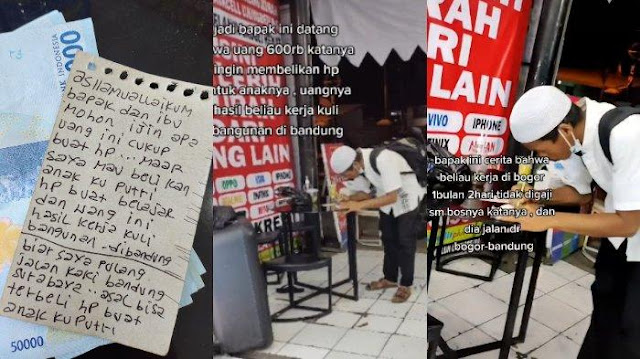 asllamuallaikum
bapak dan ibu
mohon ijin apa
uang ini cukup
buat hp... maaf
saya mau beli kan
anak ku putri
hp buat belajar
dan uang ini
hasil kerja kuli
bangunan dibandung
biat saya pulang
jalan kaki bandung
surabaya.. asal bisa
terbeli hp buat
anak ku putri
50000
jadi bapak ini datang
wa uang 600rb katanya
ingin membelikan hp
untuk anaknya , uangnya
hasil beliau kerja kuli
bangunan di bandung
NG LAIN
OPPO
INFINIX
KRE
RAH
RI
LAIN
VIVO
IPHONE
bapak ini cerita bahwa
beliau kerja di bogor
1bulan 2hari tidak digaji
sm bosnya katanya , dan
dia jalan di
bogor-bandung